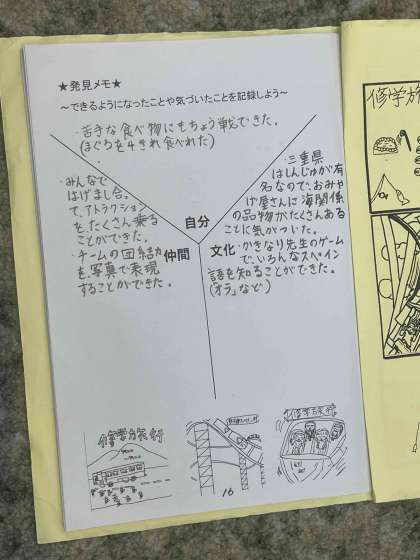 ★発見メモ★
～できるようになったことや気づいたことを記録しよう～
・苦手な食べ物にもちょう戦できた。
(まぐろを4きれ食べれた)
自分
・みんなで
はげまし合っ
て、アトラクション
をたくさん乗る
ことができた。
・チームの団結力
を、写真で表現
することができた。
仲間
・三重県
はしんじゅが有
名なので、おみや
げ屋さんに海関係
の品物がたくさんある
ことに気がついた。
文化
・かきなり先生のゲーム
で、いろんなスペイン
語を知ることができた。
(「オラ」など)
修学旅行
修学旅行
16
修学旅